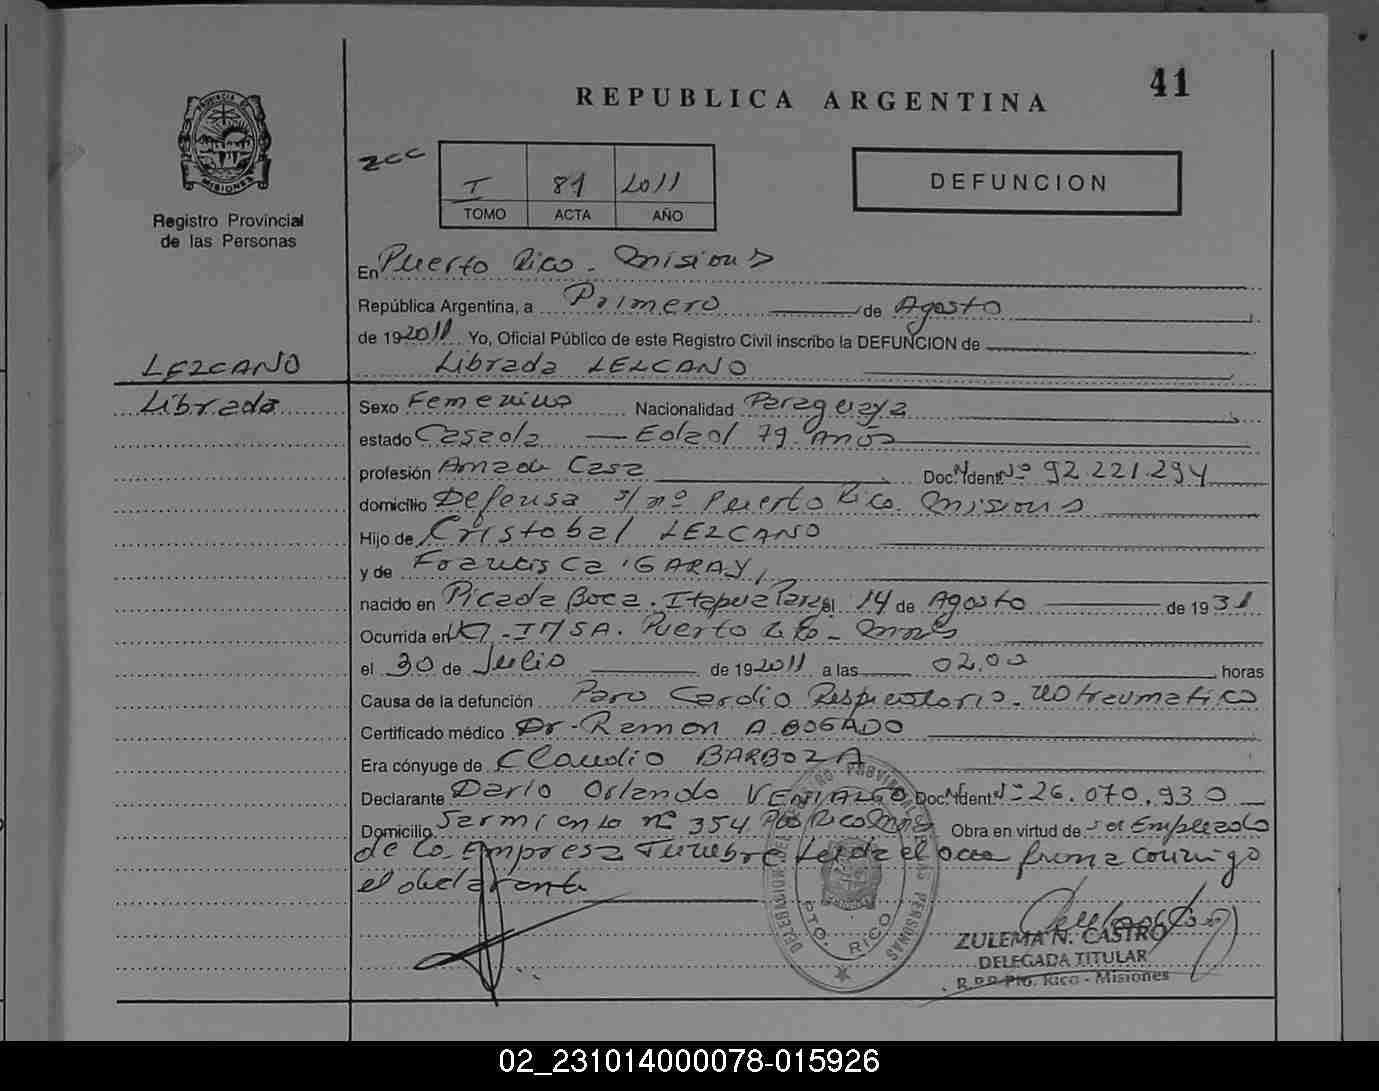 41
REPUBLICA ARGENTINA
PROVINCIA DE
MISIONES
Registro Provincial
de las Personas
zcc
I 81 2011
TOMO ACTA AÑO
DEFUNCION
En Puerto Rico. Misiones
República Argentina, a Primero de Agosto
de 19 2011 Yo, Oficial Público de este Registro Civil inscribo la DEFUNCION de
LEZCANO Librada LEZCANO
Librada Sexo Femenino Nacionalidad Paraguaya
estado Casada — Edad 79 Años
profesión Ama de Casa Doc. Ident Nº 92.221.294
domicilio Defensa s/nº Puerto Rico Misiones
Hijo de Cristobal LEZCANO
y de Francisca GARAY,
nacido en Picada Boca. Itapua Parag el 14 de Agosto de 19 31
Ocurrida en IMSA. Puerto Rico - Mnes
el 30 de Julio de 19 2011 a las 02.00 horas
Causa de la defunción Paro Cardio Respiratorio. no traumatico
Certificado médico Dr. Ramon A. BOGADO
Era cónyuge de Claudio BARBOZA
Declarante Dario Orlando VENIALGO Doc. Ident Nº 26.070.930
Domicilio Sarmiento nº 354 Pto Rico Mnes Obra en virtud de ser Empleado
de la Empresa Funebre Leida el acta firma conmigo
el declarante
DELEGACION DEL REGISTRO PROVINCIAL DE LAS PERSONAS
PTO. RICO
ZULEMA N. CASTRO
DELEGADA TITULAR
R.P.P. Pto. Rico - Misiones
02_231014000078-015926